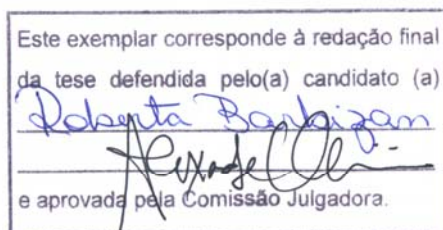 Este exemplar corresponde à redação final
da tese defendida pelo(a) candidato (a)
Roberta Barbizan
e aprovada pela Comissão Julgadora.